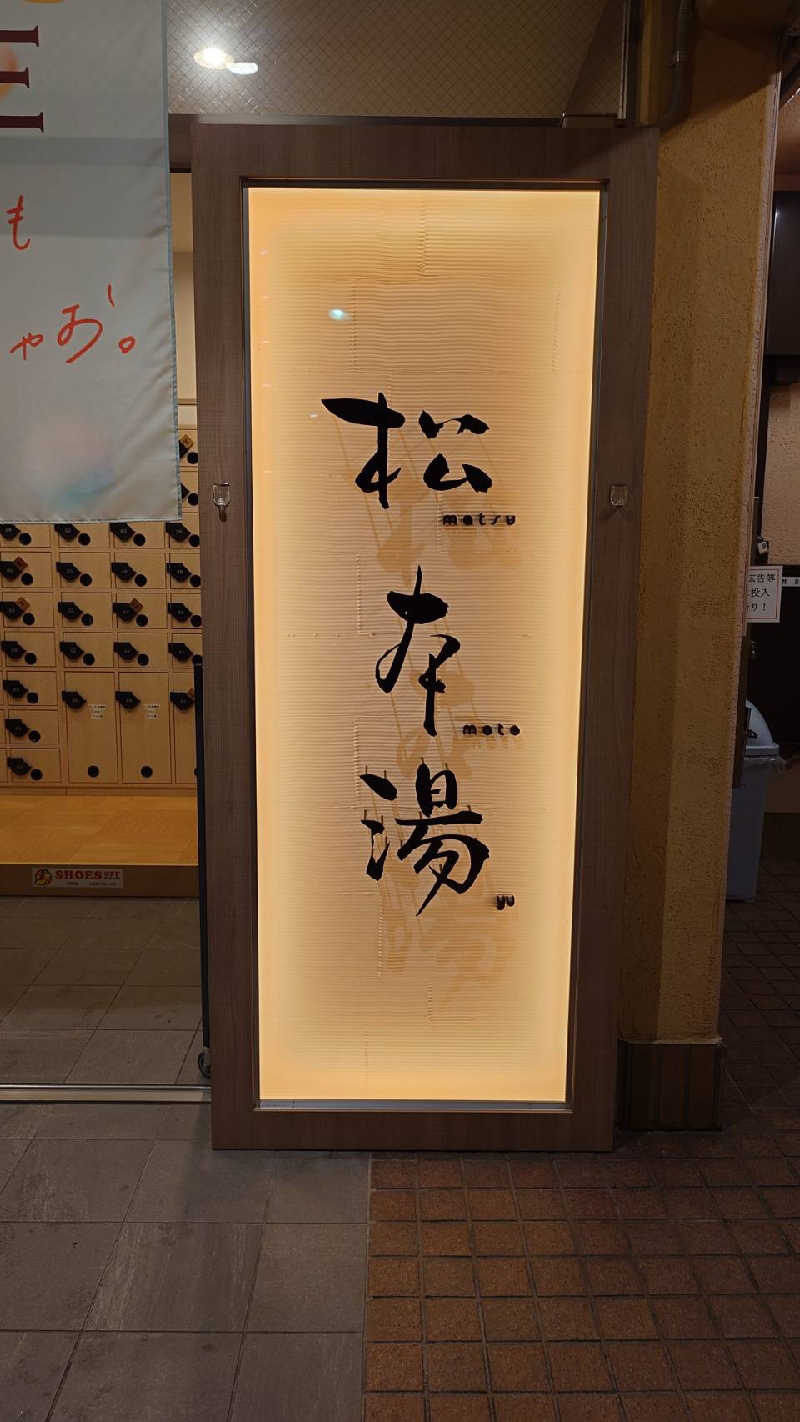 も
ゃお。
松
matsu
本
moto
湯
yu
SHOES
広告等
投入
り！